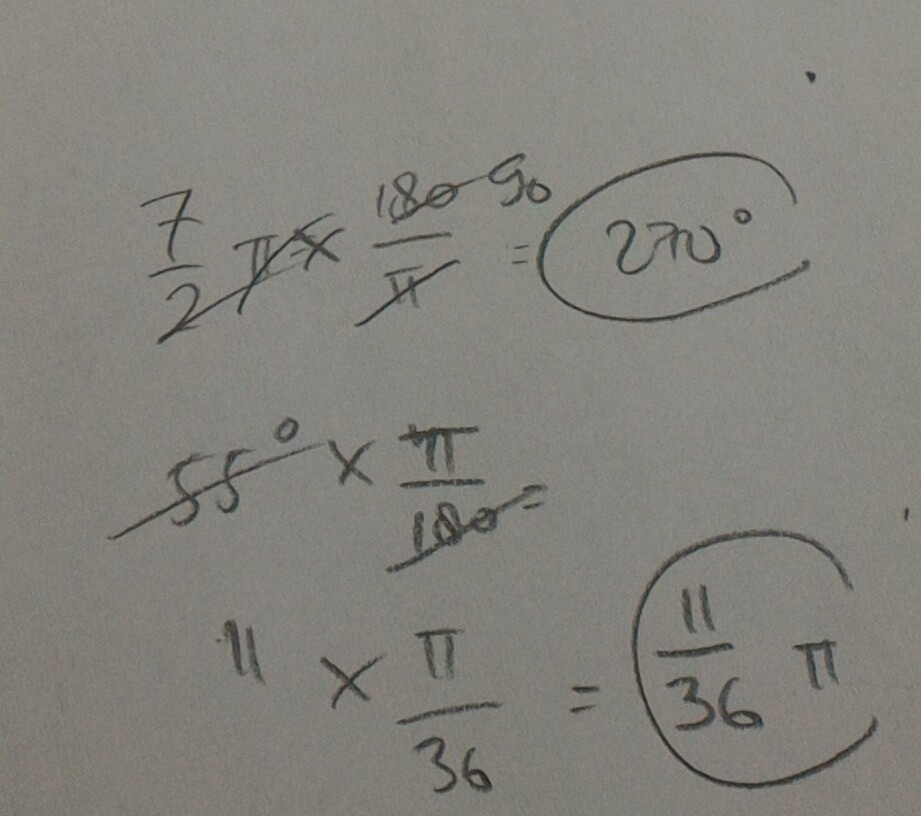 7/2 π × 180 90/π = 270°
55° × π/180 =
11 × π/36 = 11/36 π